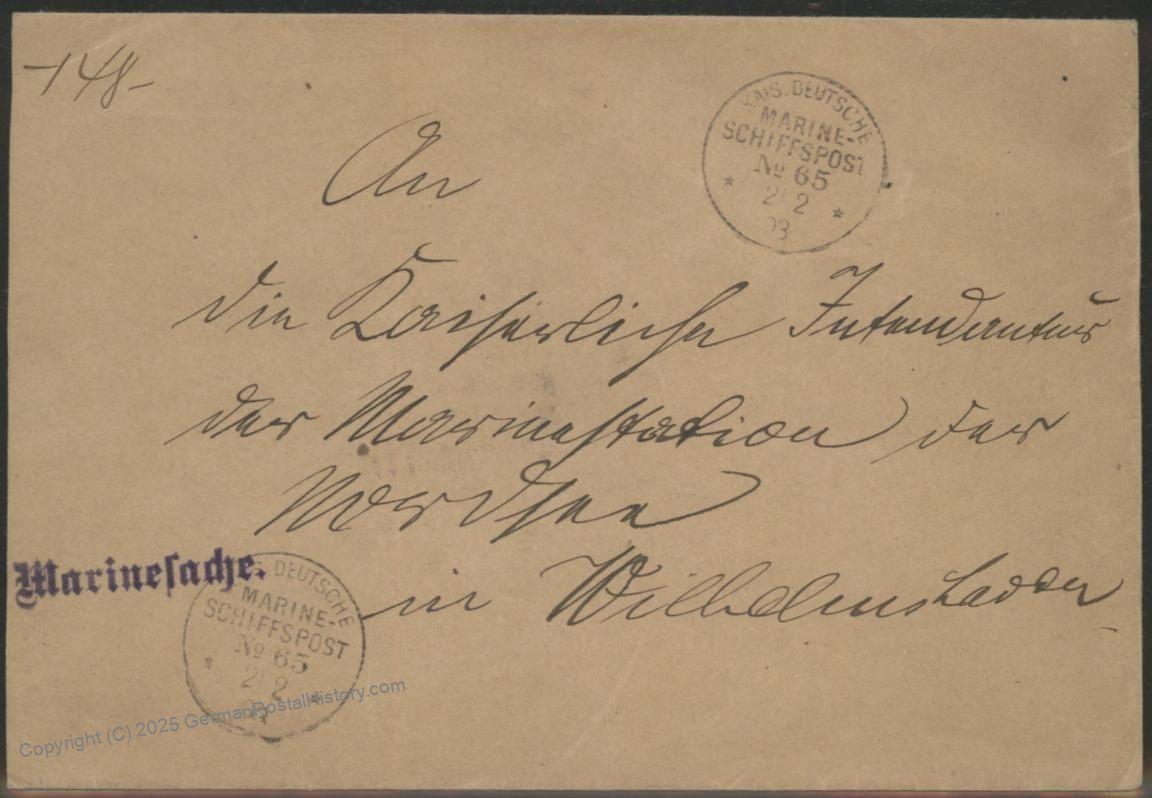 -148-
KAIS. DEUTSCHE
MARINE-
SCHIFFSPOST
No 65
2 2
03
An
die Kaiserliche Intendantur
der Marinestation der
Nordsee
in Wilhelmshaven
Marinesache.
KAIS. DEUTSCHE
MARINE-
SCHIFFSPOST
No 65
2 2
Copyright (C) 2025 GermanPostalHistory.com